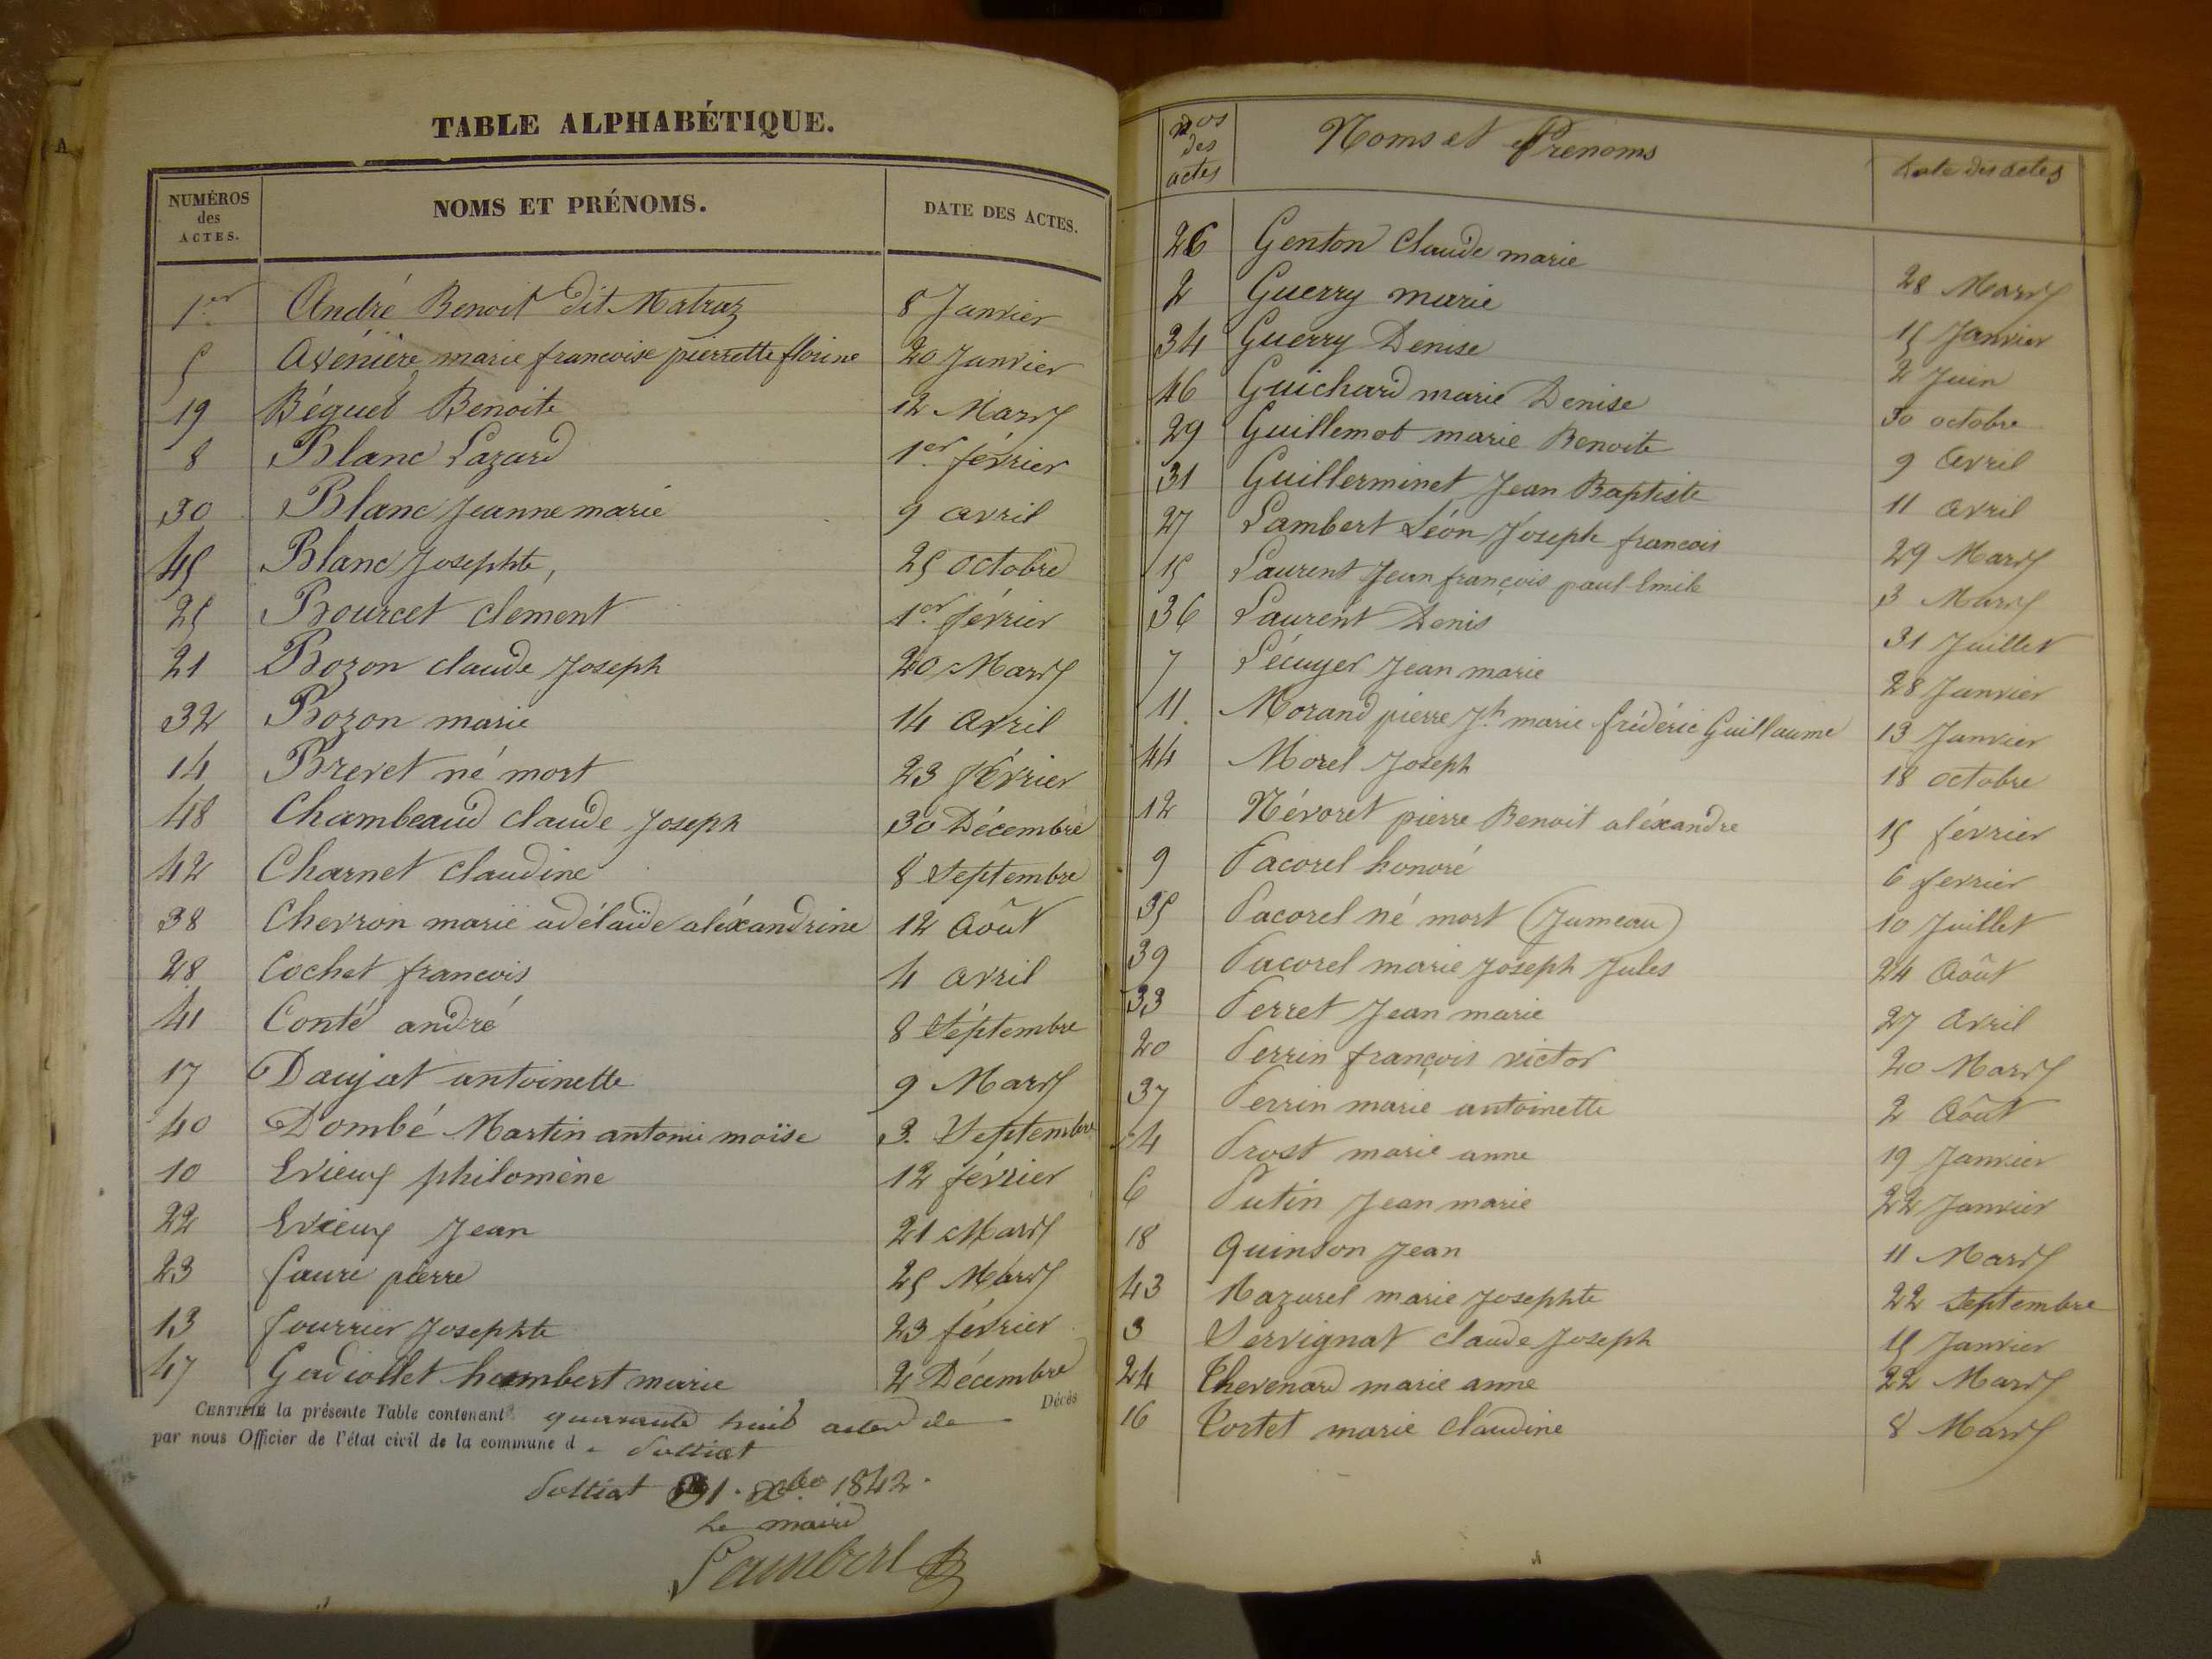 TABLE ALPHABÉTIQUE.
NUMÉROS des ACTES. NOMS ET PRÉNOMS. DATE DES ACTES.
1er André Benoit dit Matraz 8 Janvier
5 Avénière marie francoise pierrette florine 20 Janvier
19 Béguet Benoite 12 Mars
8 Blanc Lazard 1er février
30 Blanc Jeanne marie 9 avril
45 Blanc Josephte, 25 octobre
25 Bourcet clement 1er février
21 Bozon claude Joseph 20 Mars
32 Bozon marie 14 avril
14 Brevet né mort 23 février
48 Chambeaud claude Joseph 30 Décembre
42 Charnet claudine 8 Septembre
38 Chevron marie adélaïde aléxandrine 12 Août
28 Cochet francois 4 avril
41 Conté andré 8 Séptembre
17 Daujat antoinette 9 Mars
40 Dombé Martin antonin moïse 3. Septembre
10 Evieux philomène 12 février
22 Evieux Jean 21 Mars
23 faure pierre 25 Mars
13 fourrier Josephte 23 février
47 Gadiollet humbert marie 2 Décembre
CERTIFIÉ la présente Table contenant quarante huit actes de Décès
par nous Officier de l'état civil de la commune d
31. Xbre 1842.
Le maire
Lambert
nos des actes Noms et Prenoms Date des actes
26 Genton Claude marie 28 Mars
2 Guerry marie 15 Janvier
34 Guerry Denise 2 Juin
46 Guichard marie Denise 30 octobre
29 Guillemot marie Benoite 9 avril
31 Guillerminet Jean Baptiste 11 avril
27 Lambert Léon Joseph francois 29 Mars
15 Laurent Jean françois paul Emile 3 Mars
36 Laurent Denis 31 Juillet
7 Lécuyer Jean marie 28 Janvier
11. Morand pierre Jh marie frédéric Guillaume 13 Janvier
44 Morel Joseph 18 octobre
12 Névoret pierre Benoit aléxandre 15 février
9 Pacorel honoré 6 fevrier
35 Pacorel né mort (Jumeau) 10 Juillet
39 Pacorel marie Joseph Jules 24 Août
33 Perret Jean marie 27 avril
20 Perrin françois victor 20 Mars
37 Perrin marie antoinette 2 Août
4 Prost marie anne 19 Janvier
6 Putin Jean marie 22 Janvier
18 Quinson Jean 11 Mars
43 Razurel marie Josephte 22 Septembre
3 Servignat claude Joseph 15 Janvier
24 Thevenard marie anne 22 Mars
16 Tortet marie claudine 8 Mars